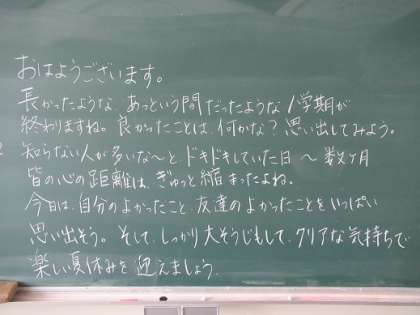 おはようございます。
長かったような、あっという間だったような1学期が
終わりますね。良かったことは、何かな？思い出してみよう。
知らない人が多いな〜と ドキドキしていた日 〜 数ヶ月
皆の心の距離は、ぎゅっと縮まったよね。
今日は、自分のよかったこと、友達のよかったことをいっぱい
思い出そう。そして、しっかり大そうじもして、クリアな気持ちで
楽しい夏休みを迎えましょう。